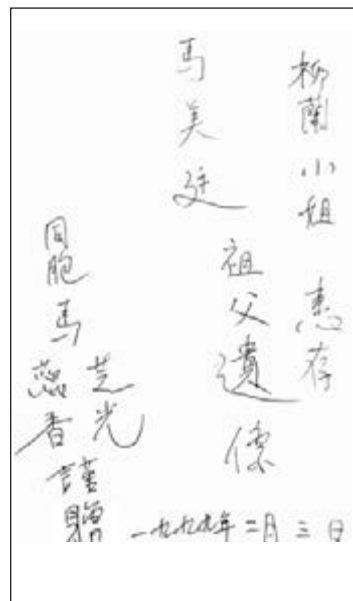 柳蘭小姐 惠存
馬美廷
祖父遺像
同胞馬芝光
蕊香
謹贈
一九九九年二月三日